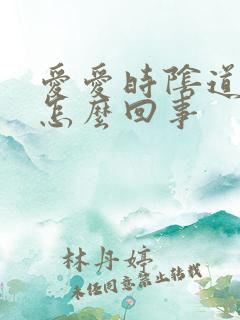 愛愛時陰道
怎麼回事
林丹婷
未徑同意禁止轉載